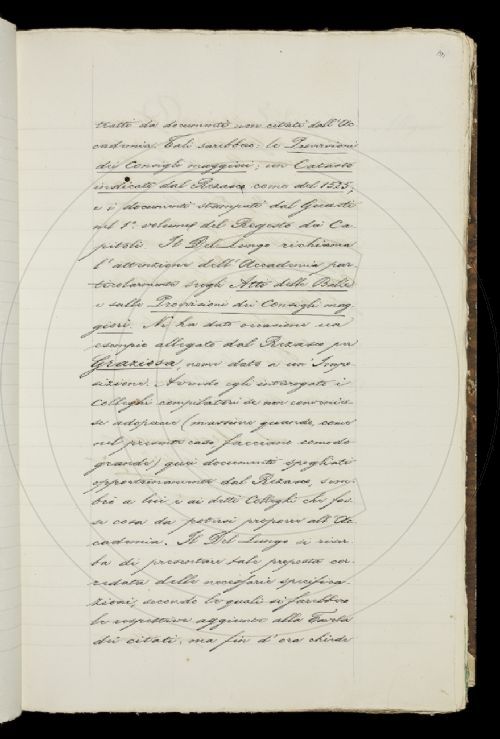 tratti da documenti non citati dall'Ac
cademia. Tali sarebbero: le Provvisioni
dei Consigli maggiori; un Catasto
indicato dal Rezasco come del 1525;
e i documenti stampati dal Guasti
nel 1º volume del Regesto dei Ca
pitoli. Il Del Lungo richiama
l'attenzione dell'Accademia par
ticolarmente sugli Atti delle Balìe
e sulle Provvisioni dei Consigli mag
giori. Ne ha dato occasione un
esempio allegato dal Rezasco per
Graziosa, nome dato a un'Impo
sizione. Avendo egli interrogato i
Colleghi compilatori se non convenis
se adoprare (massime quando, come
nel presente caso, facciano comodo
grande) quei documenti spogliati
opportunamente dal Rezasco, sem
brò a lui e ai detti Colleghi che fos
se cosa da potersi proporre all'Ac
cademia. Il Del Lungo si riser
ba di presentare tale proposta cor
redata delle necessarie specifica
zioni, secondo le quali si farebbero
le respettive aggiunte alla Tavola
dei citati, ma fin d'ora chiede